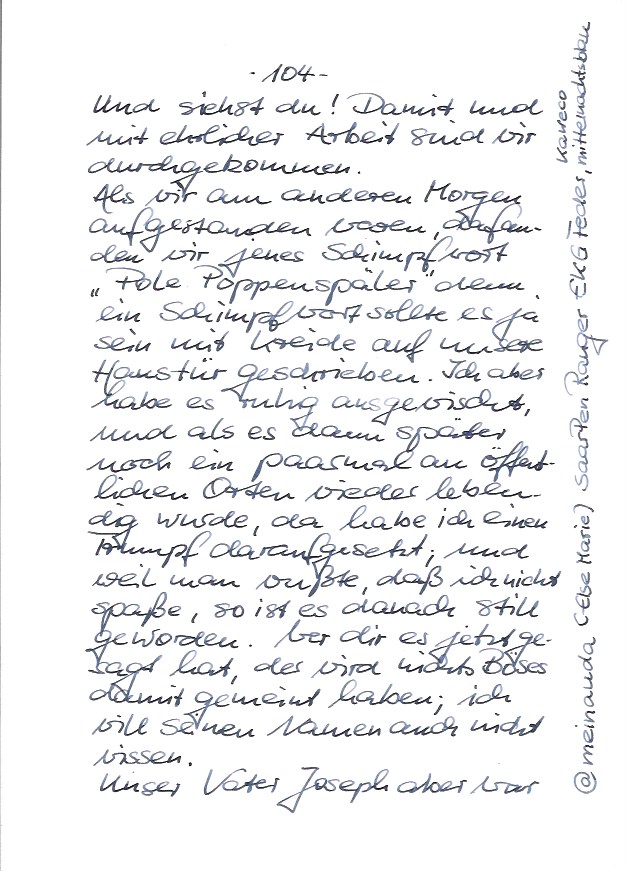 - 104 -
Und siehst du! Damit und
mit ehrlicher Arbeit sind wir
durchgekommen.
Als wir am anderen Morgen
aufgestanden waren, da fan-
den wir jenes Schimpfwort
„Pole Poppenspäler" denn
ein Schimpfwort sollte es ja
sein mit Kreide auf unsere
Haustür geschrieben. Ich aber
habe es ruhig ausgewischt,
und als es dann später
noch ein paarmal an öffent-
lichen Orten wieder leben-
dig wurde, da habe ich einen
Trumpf daraufgesetzt; und
weil man wußte, daß ich nicht
spaße, so ist es danach still
geworden. Wer dir es jetzt ge-
sagt hat, der wird nichts Böses
damit gemeint haben; ich
will seinen Namen auch nicht
wissen.
Unser Vater Joseph aber war
@meinauda (Else Marie) Saarten Ranger EKG Feder, Kaweco mitternachtsblau